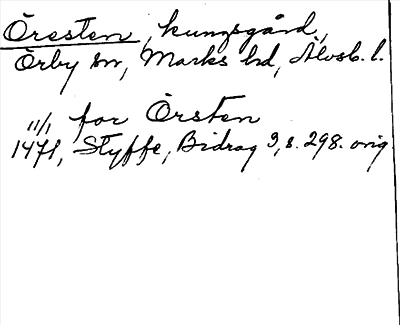 Öresten, kungsgård,
Örby sn, Marks hd, Älvsb. l.
11/1 for Örsten
1471, Styffe, Bidrag 3, s. 298. orig.